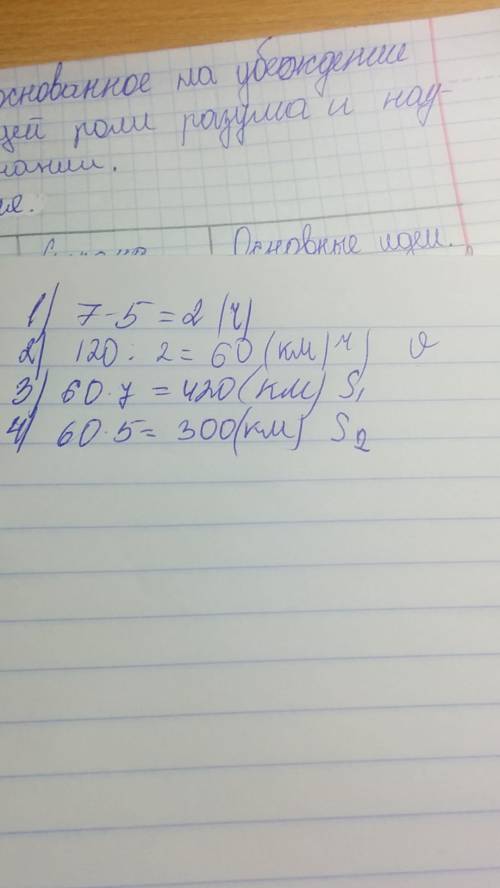 основанное на убеждении
щей роли разума и нау-
знании.
ия.
Основные идеи.
1) 7-5=2 (ч)
2) 120:2=60(км/ч) υ
3) 60·7=420(км) S₁
4) 60·5=300(км) S₂